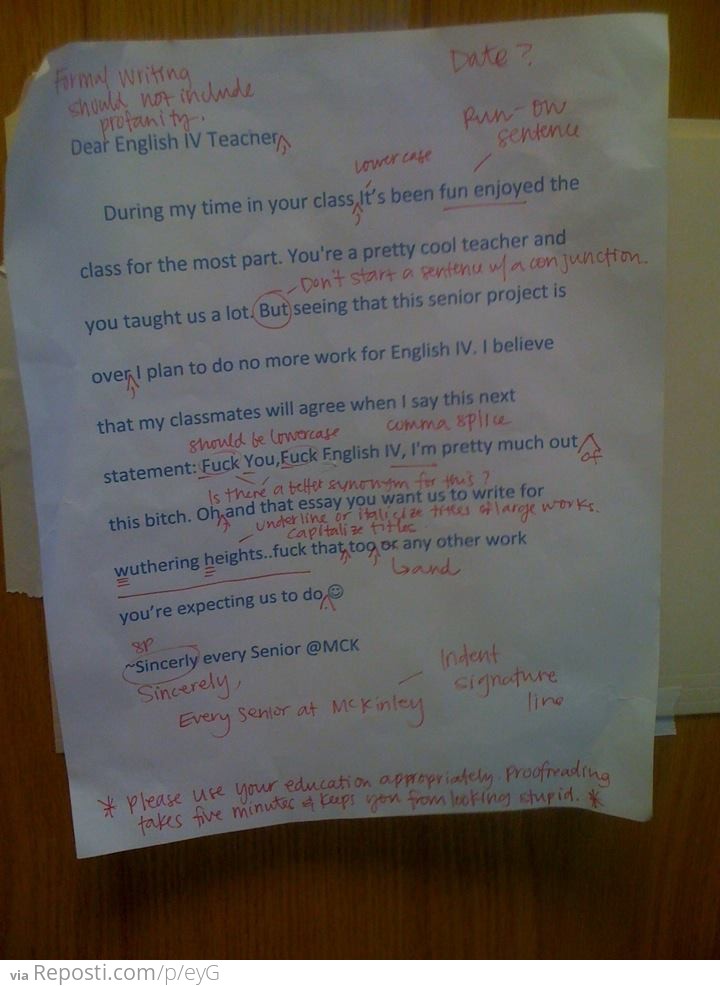 Formal writing
should not include
profanity.
Date?
Dear English IV Teacher
Run-on
sentence
lowercase
During my time in your class It's been fun enjoyed the
class for the most part. You're a pretty cool teacher and
Don't start a sentence w/ a conjunction.
you taught us a lot. But seeing that this senior project is
over, I plan to do no more work for English IV. I believe
that my classmates will agree when I say this next
should be lowercase
comma splice
statement: Fuck You,Fuck English IV, I'm pretty much out
of
Is there a better synonym for this?
this bitch. Oh and that essay you want us to write for
underline or italicize titles of large works.
capitalize titles
wuthering heights..fuck that too or any other work
and
you're expecting us to do ☺
sp
~Sincerly every Senior @MCK
Sincerely,
Every Senior at McKinley
Indent
signature
line
* Please use your education appropriately. Proofreading
takes five minutes & keeps you from looking stupid. *
via Reposti.com/p/eyG